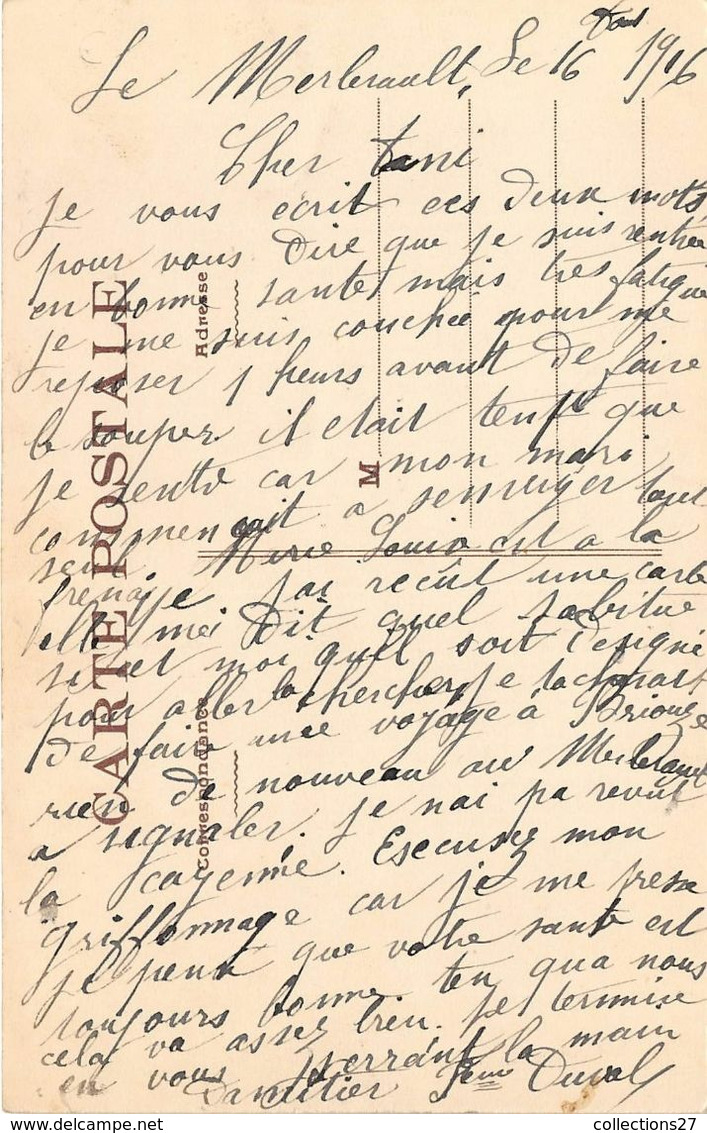 Le Merlerault, Le 16 Aout 1916
Cher Ami
Je vous écrit ces deux mots
pour vous dire que je suis rentrée
en bonne santé mais très fatigué
je me suis couchée pour me
reposer 1 heurs avant de faire
le souper il était temp que
je rentre car mon mari
commençait a sennuyer tout
seul Marie Louise est a la
frenaye jai reçût une carte
elle mei dit quel sabitue
si et moi quel soit
pour aller la chercher je la
de faire mce voyage à Briouze
rien de nouveau au Merlerault
a signaler. je nai pa revût
la cayenne. Escusez mon
griffonnage car je me presse
je pense que votre santé est
toujours bonne ten qua nous
cela va assez bien. Je termine
en vous serrant la main
Damitier Feme Duval
CARTE POSTALE
Correspondance
Adresse
M
collections27